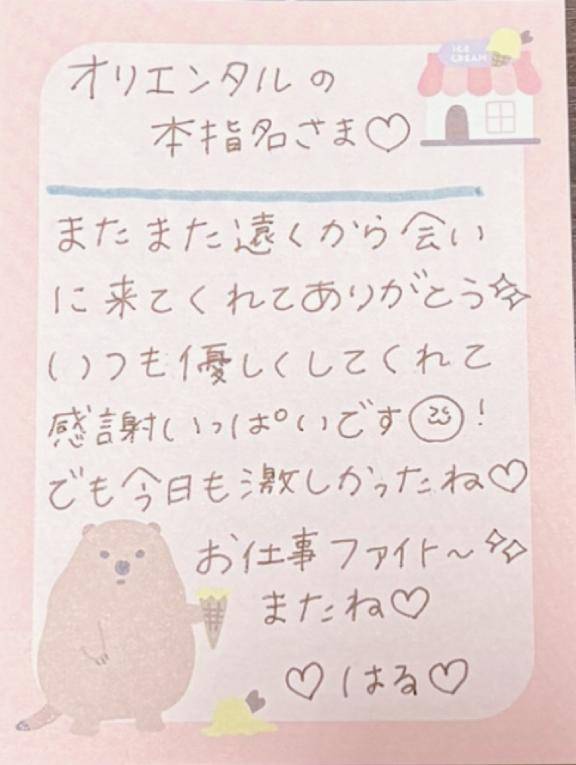 ICE
CREAM
オリエンタルの
本指名さま♡
またまた遠くから会い
に来てくれてありがとう✨
いつも優しくしてくれて
感謝いっぱいです!
でも今日も激しかったね♡
お仕事ファイト〜✨
またね♡
♡はる♡